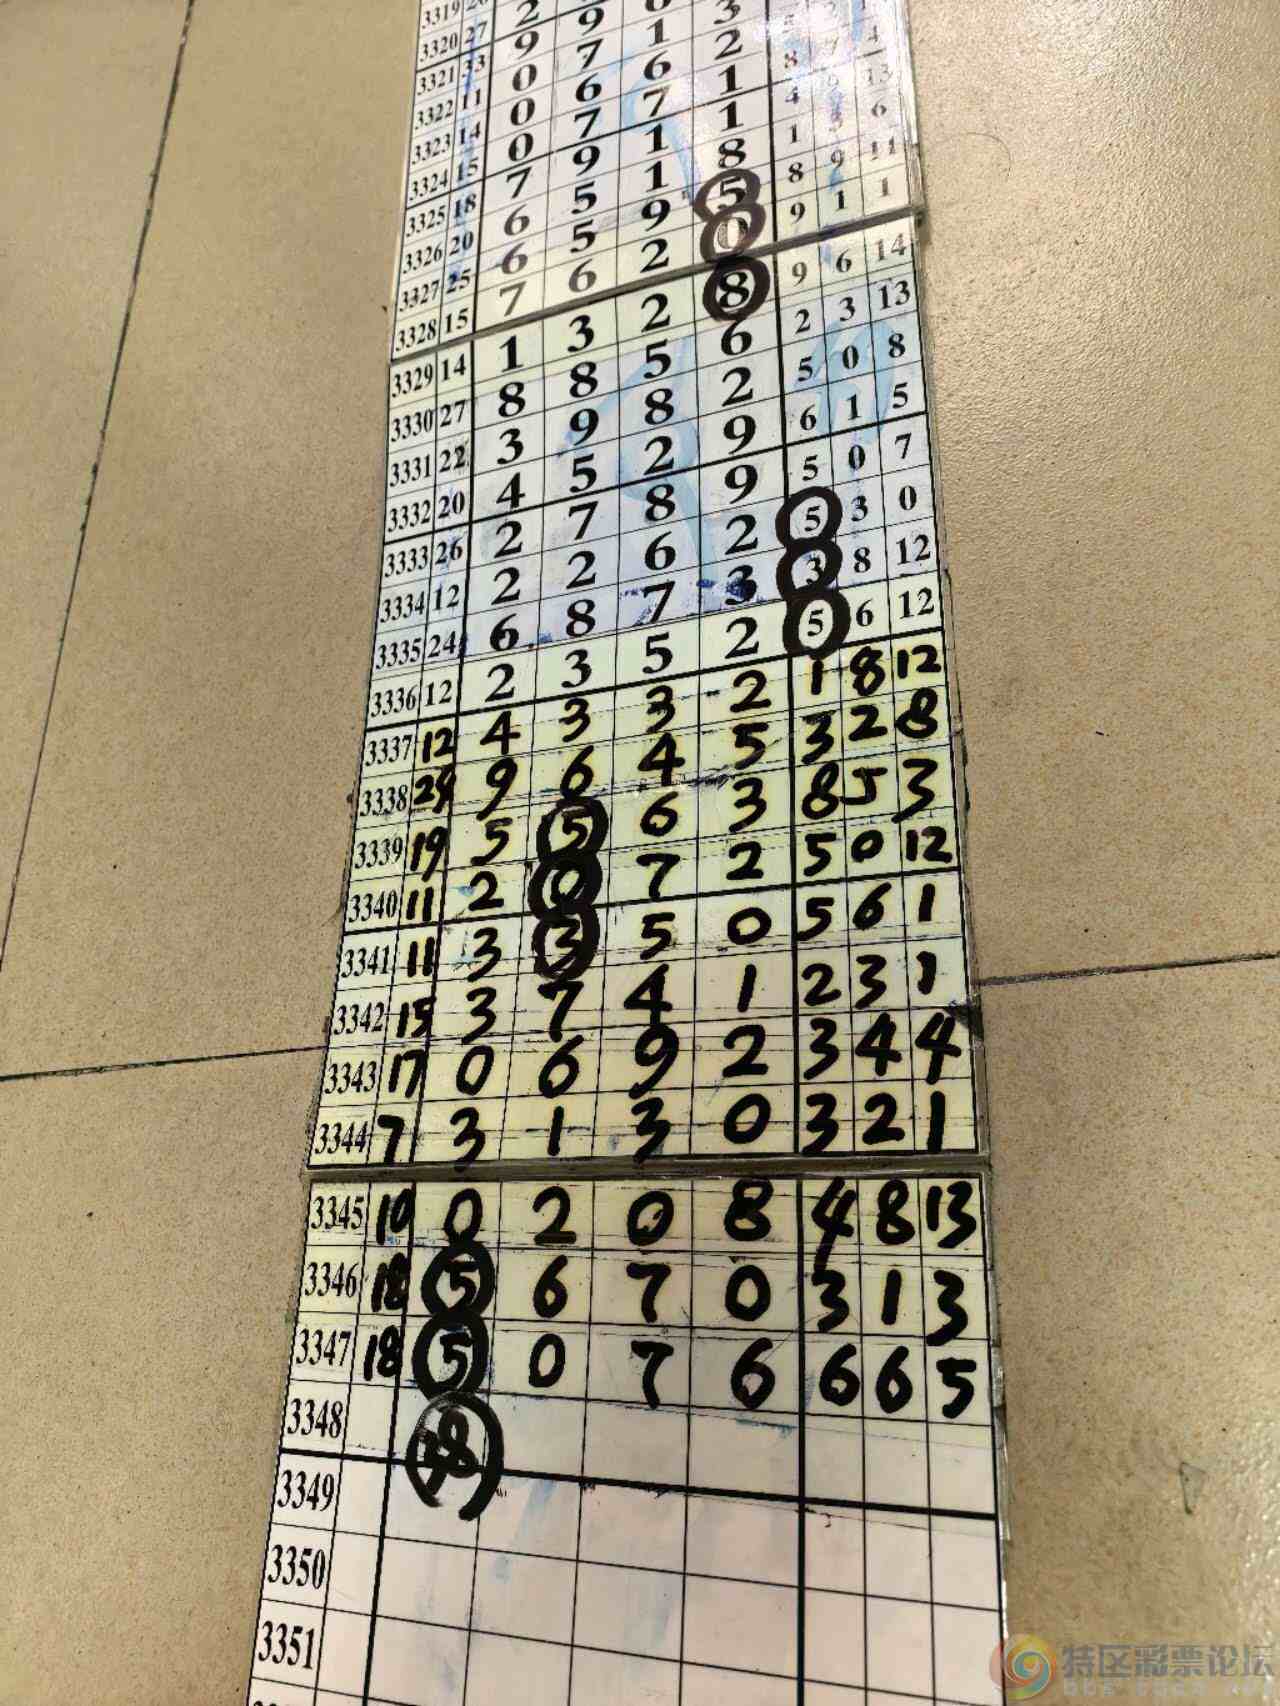 3319
3320 27 2
3321 33 9 9
3322 11 0 7 1 3
3323 14 0 6 6 2
3324 15 0 7 7 1 8 7 4
3325 18 7 9 1 1 4 13
3326 20 6 5 1 8 1 3 6
3327 25 6 5 9 5 8 9 11
3328 15 7 6 2 0 9 1 1
3329 14 1 3 2 8 9 6 14
3330 27 8 8 5 6 2 3 13
3331 22 3 9 8 2 5 0 8
3332 20 4 5 2 9 6 1 5
3333 26 2 7 8 9 5 0 7
3334 12 2 2 6 2 5 3 0
3335 24 6 8 7 3 3 8 12
3336 12 2 3 5 2 5 6 12
3337 12 4 3 3 2 1 8 12
3338 24 9 6 4 5 3 2 8
3339 19 5 5 6 3 8 5 3
3340 11 2 0 7 2 5 0 12
3341 11 3 3 5 0 5 6 1
3342 15 3 7 4 1 2 3 1
3343 17 0 6 9 2 3 4 4
3344 7 3 1 3 0 3 2 1
3345 10 0 2 0 8 4 8 13
3346 18 5 6 7 0 3 1 3
3347 18 5 0 7 6 6 6 5
3348 38
3349
3350
3351
特区彩票论坛